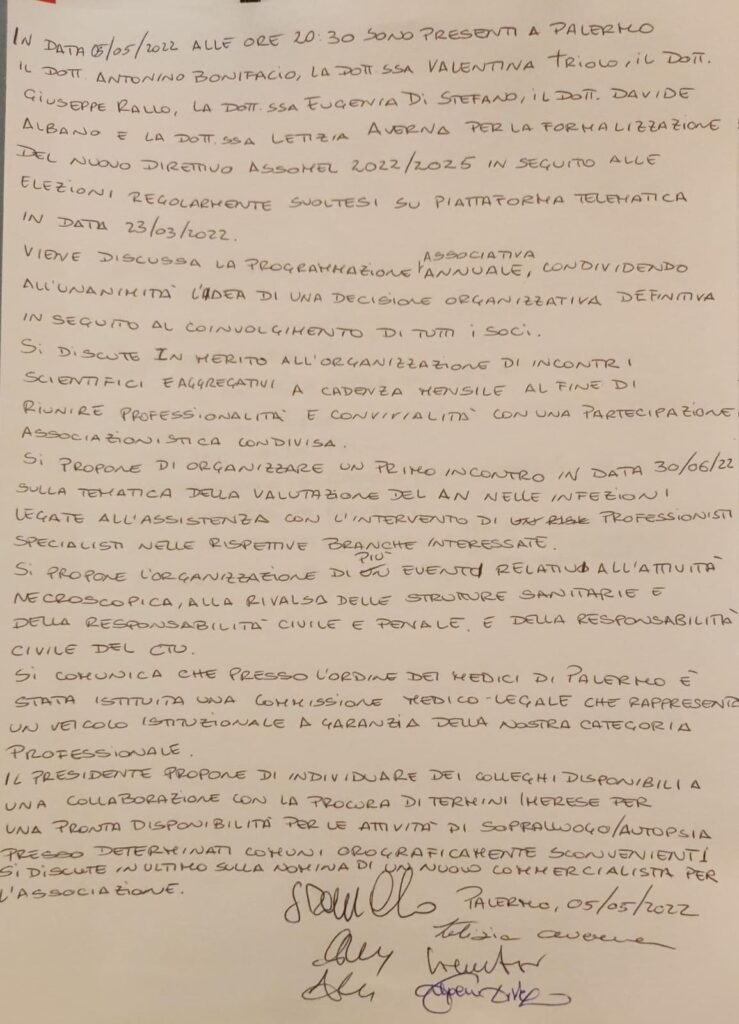 IN DATA 05/05/2022 ALLE ORE 20:30 SONO PRESENTI A PALERMO
IL DOTT. ANTONINO BONIFACIO, LA DOTT.SSA VALENTINA TRIOLO, IL DOTT.
GIUSEPPE RALLO, LA DOTT.SSA EUGENIA DI STEFANO, IL DOTT. DAVIDE
ALBANO E LA DOTT.SSA LETIZIA AVERNA PER LA FORMALIZZAZIONE
DEL NUOVO DIRETTIVO ASSOMEL 2022/2025 IN SEGUITO ALLE
ELEZIONI REGOLARMENTE SVOLTESI SU PIATTAFORMA TELEMATICA
IN DATA 23/03/2022.
VIENE DISCUSSA LA PROGRAMMAZIONE ASSOCIATIVA ANNUALE, CONDIVIDENDO
ALL'UNANIMITÀ L'IDEA DI UNA DECISIONE ORGANIZZATIVA DEFINITIVA
IN SEGUITO AL COINVOLGIMENTO DI TUTTI I SOCI.
SI DISCUTE IN MERITO ALL'ORGANIZZAZIONE DI INCONTRI
SCIENTIFICI E AGGREGATIVI A CADENZA MENSILE AL FINE DI
RIUNIRE PROFESSIONALITÀ E CONVIVIALITÀ CON UNA PARTECIPAZIONE
ASSOCIAZIONISTICA CONDIVISA.
SI PROPONE DI ORGANIZZARE UN PRIMO INCONTRO IN DATA 30/06/22
SULLA TEMATICA DELLA VALUTAZIONE DEL AN NELLE INFEZIONI
LEGATE ALL'ASSISTENZA CON L'INTERVENTO DI PROFESSIONISTI
SPECIALISTI NELLE RISPETTIVE BRANCHE INTERESSATE.
SI PROPONE L'ORGANIZZAZIONE DI PIÙ EVENTI RELATIVI ALL'ATTIVITÀ
NECROSCOPICA, ALLA RIVALSA DELLE STRUTURE SANITARIE E
DELLA RESPONSABILITÀ CIVILE E PENALE. E DELLA RESPONSABILITÀ
CIVILE DEL CTU.
SI COMUNICA CHE PRESSO L'ORDINE DEI MEDICI DI PALERMO È
STATA ISTITUITA UNA COMMISSIONE MEDICO-LEGALE CHE RAPPRESENTA
UN VEICOLO ISTITUZIONALE A GARANZIA DELLA NOSTRA CATEGORIA
PROFESSIONALE.
IL PRESIDENTE PROPONE DI INDIVIDUARE DEI COLLEGHI DISPONIBILI A
UNA COLLABORAZIONE CON LA PROCURA DI TERMINI IMERESE PER
UNA PRONTA DISPONIBILITÀ PER LE ATTIVITÀ DI SOPRALLUOGO/AUTOPSIA
PRESSO DETERMINATI COMUNI OROGRAFICAMENTE SCONVENIENTI
SI DISCUTE IN ULTIMO SULLA NOMINA DI UN NUOVO COMMERCIALISTA PER
L'ASSOCIAZIONE.
PALERMO, 05/05/2022
Letizia Averna